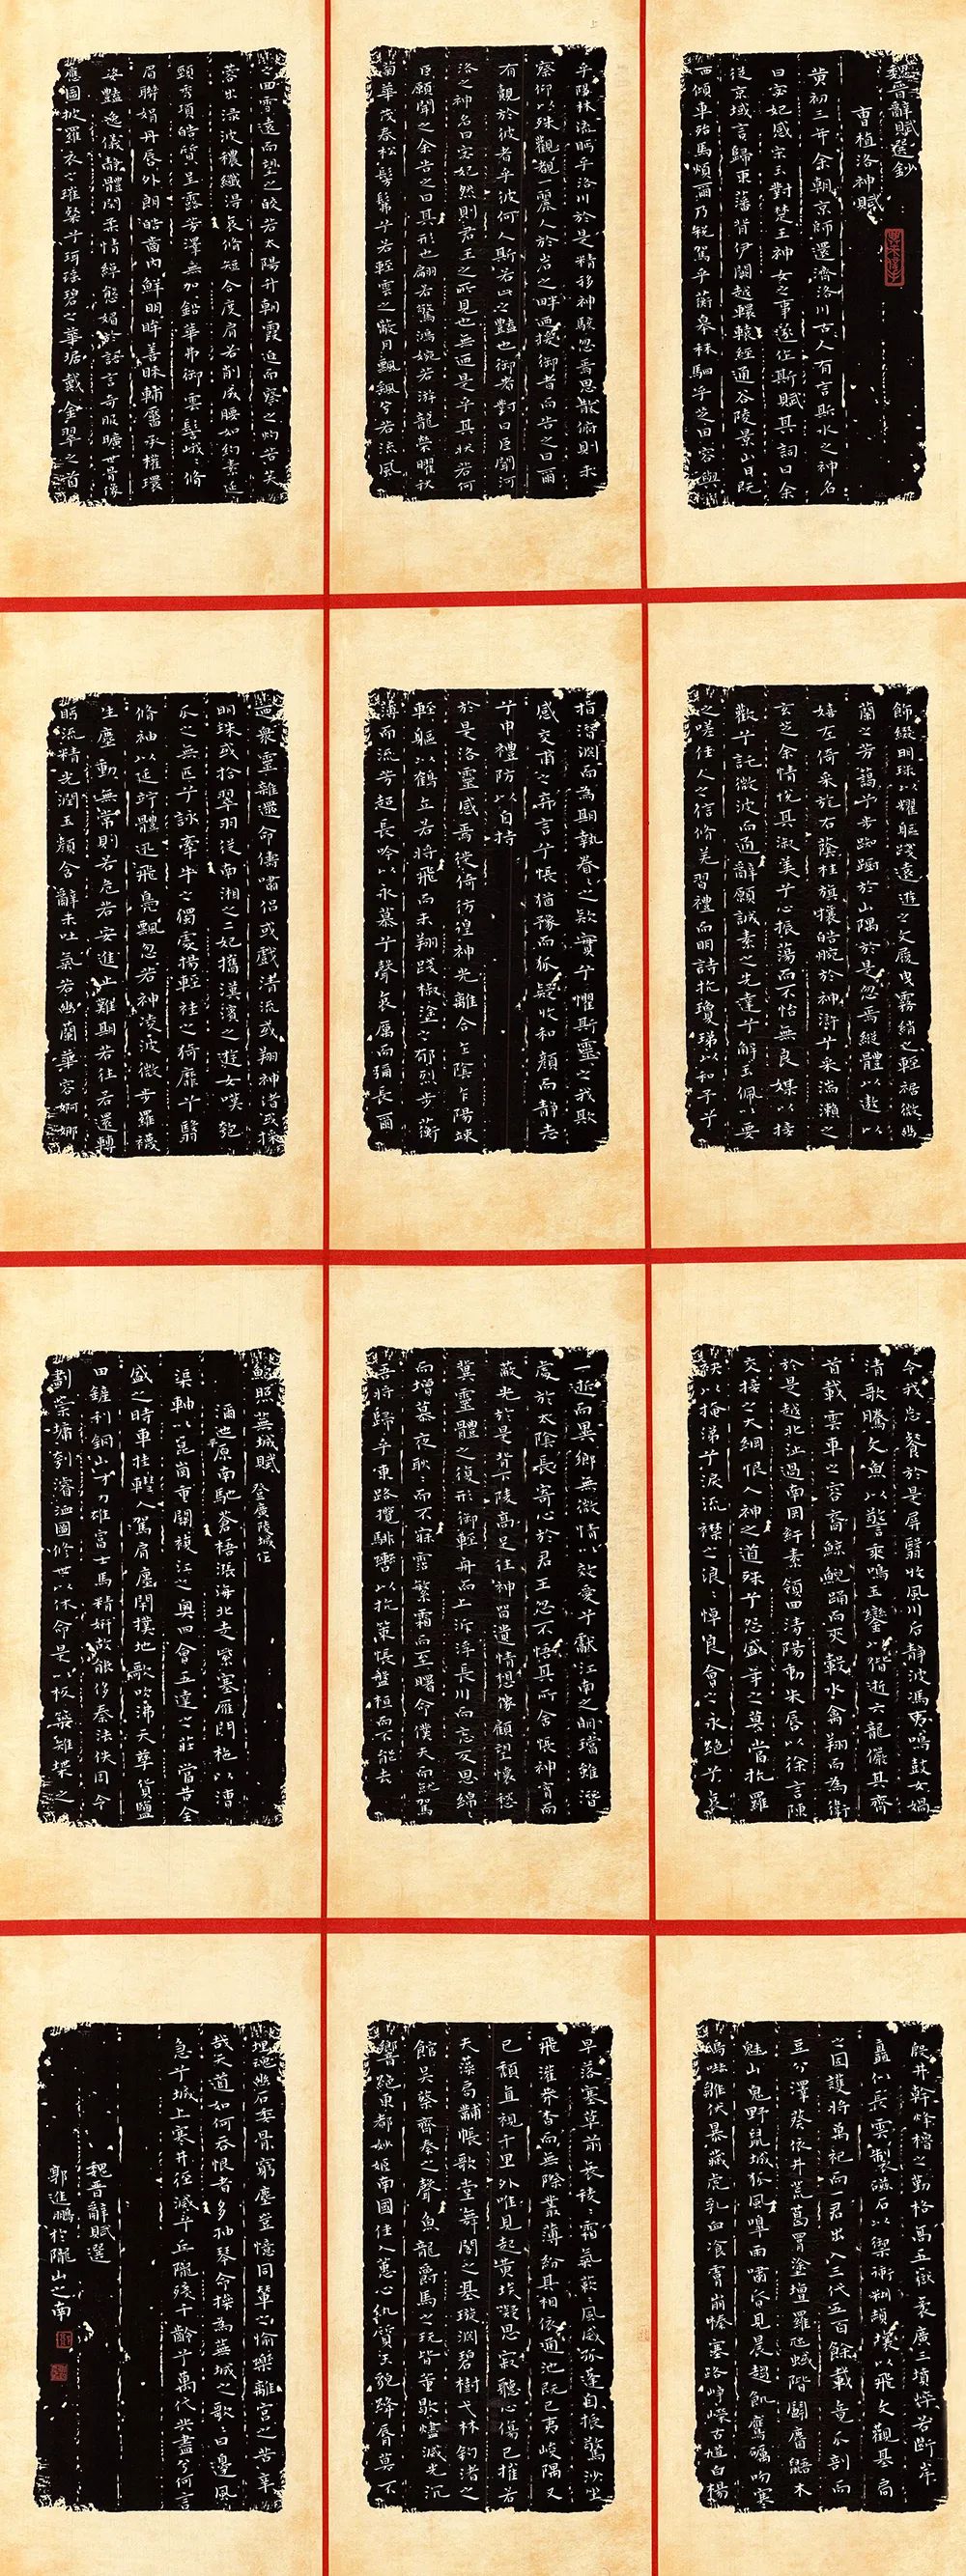 魏晉辭賦選鈔
曹植洛神賦
黃初三年余朝京師還濟洛川古人有言斯水之神名
曰宓妃感宋玉對楚王神女之事遂作斯賦其詞曰余
從京域言歸東藩背伊闕越轘轅經通谷陵景山日既
西傾車殆馬煩爾乃稅駕乎蘅皋秣駟乎芝田容與
乎陽林流眄乎洛川於是精移神駭忽焉思散俯則未
察仰以殊觀覩一麗人於岩之畔迺援御者而告之曰爾
有覿於彼者乎彼何人斯若此之豔也御者對曰臣聞河
洛之神名曰宓妃然則君王之所見也無迺是乎其狀若何
臣願聞之余告之曰其形也翩若驚鴻婉若游龍榮曜秋
菊華茂春松髣髴兮若輕雲之蔽月飄颻兮若流風
之回雪遠而望之皎若太陽升朝霞迫而察之灼若芙
蓉出淥波穠纖得衷脩短合度肩若削成腰如約素延
頸秀項皓質呈露芳澤無加鉛華弗御雲髻峨峨脩
眉聯娟丹唇外朗皓齒內鮮明眸善睞輔靨承權瓌
姿豔逸儀靜體閑柔情綽態媚於語言奇服曠世骨像
應圖披羅衣之璀粲兮珥瑤碧之華琚戴金翠之首
飾綴明珠以耀軀踐遠遊之文履曳霧綃之輕裾微幽
蘭之芳藹兮步踟躕於山隅於是忽焉縱體以遨以
嬉左倚采旄右蔭桂旗攘皓腕於神滸兮采湍瀨之
玄芝余情悅其淑美兮心振蕩而不怡無良媒以接
歡兮託微波而通辭願誠素之先達兮解玉佩以要
之嗟佳人之信脩羌習禮而明詩抗瓊珶以和予兮
指潛淵而為期執眷眷之款實兮懼斯靈之我欺
感交甫之棄言兮悵猶豫而狐疑收和顏而靜志
兮申禮防以自持
於是洛靈感焉徙倚彷徨神光離合乍陰乍陽竦
輕軀以鶴立若將飛而未翔踐椒塗之郁烈步蘅
薄而流芳超長吟以永慕兮聲哀厲而彌長爾
迺眾靈雜遝命儔嘯侶或戲清流或翔神渚或採
明珠或拾翠羽從南湘之二妃攜漢濱之遊女嘆匏
瓜之無匹兮詠牽牛之獨處揚輕袿之猗靡兮翳
脩袖以延竚體迅飛鳧飄忽若神凌波微步羅襪
生塵動無常則若危若安進止難期若往若還轉
眄流精光潤玉顏含辭未吐氣若幽蘭華容婀娜
令我忘餐於是屏翳收風川后靜波馮夷鳴鼓女媧
清歌騰文魚以警乘鳴玉鑾以偕逝六龍儼其齊
首載雲車之容裔鯨鯢踊而夾轂水禽翔而為衛
於是越北沚過南岡紆素領回清陽動朱唇以徐言陳
交接之大綱恨人神之道殊兮怨盛年之莫當抗羅
袂以掩涕兮淚流襟之浪浪悼良會之永絕兮哀
一逝而異鄉無微情以效愛兮獻江南之明璫雖潛
處於太陰長寄心於君王忽不悟其所舍悵神宵而
蔽光於是背下陵高足往神留遺情想像顧望懷愁
冀靈體之復形御輕舟而上泝浮長川而忘反思綿綿
而增慕夜耿耿而不寐霑繁霜而至曙命僕夫而就駕
吾將歸乎東路攬騑轡以抗策悵盤桓而不能去
鮑照 蕪城賦 登廣陵城作
濔迆平原南馳蒼梧漲海北走紫塞雁門柂以漕
渠軸以昆崗重關複江之奧四會五達之莊當昔全
盛之時車挂轊人駕肩廛閈撲地歌吹沸天孳貨鹽
田鏟利銅山才力雄富士馬精妍故能侈秦法佚周令
劃崇墉刳濬洫圖修世以休命是以板築雉堞之
殷井幹烽櫓之勤格高五嶽袤廣三墳崪若斷岸
矗似長雲製磁石以禦衝糊赬壤以飛文觀基扃
之固護將萬祀而一君出入三代五百餘載竟瓜剖而
豆分澤葵依井荒葛罥塗壇羅虺蜮階鬭麏鼯木
魅山鬼野鼠城狐風嗥雨嘯昏見晨趨飢鷹礪吻寒
鴟嚇雛伏暴藏虎乳血飡膚崩榛塞路崢嶸古馗白楊
早落塞草前衰稜稜霜氣蔌蔌風威孤蓬自振驚沙坐
飛灌莽杳而無際叢薄紛其相依通池既已夷峻隅又
已頹直視千里外唯見起黃埃凝思寂聽心傷已摧若
夫藻扃黼帳歌堂舞閣之基璇淵碧樹弋林釣渚之
館吳蔡齊秦之聲魚龍爵馬之玩皆薰歇燼滅光沉
響絕東都妙姬南國佳人蕙心紈質玉貌絳唇莫不
埋魂幽石委骨窮塵豈憶同輦之愉樂離宮之苦辛
哉天道如何吞恨者多抽琴命操為蕪城之歌歌曰邊風
急兮城上寒井徑滅兮丘隴殘千齡兮萬代共盡兮何言
魏晉辭賦選
郭進鵬於隴山之南